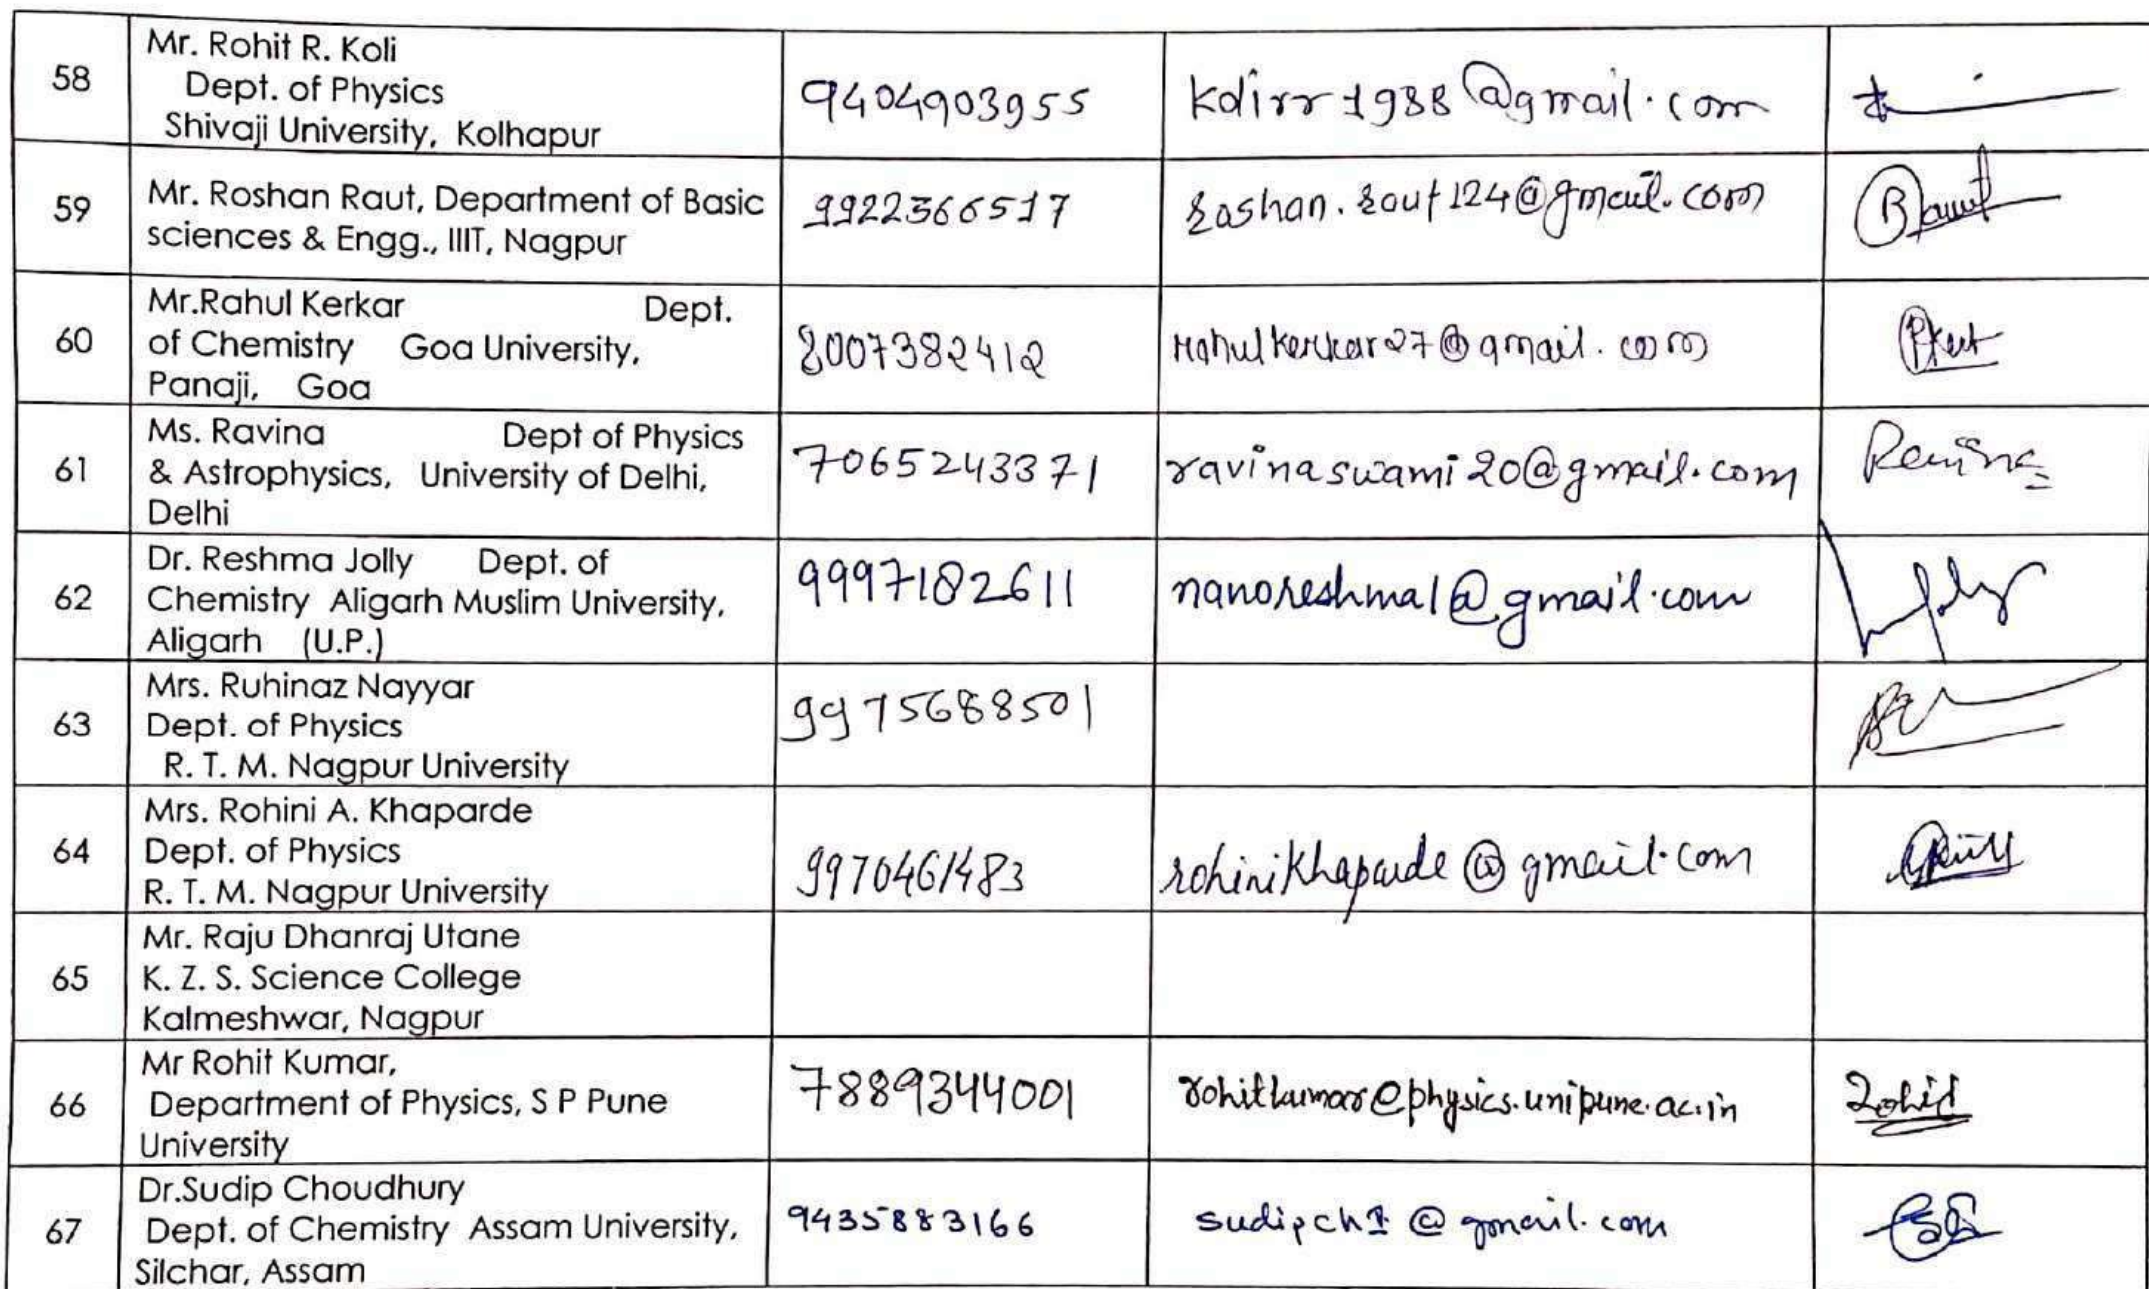 58
Mr. Rohit R. Koli
Dept. of Physics
Shivaji University, Kolhapur
9404903955
kolirr1988@gmail.com
59
Mr. Roshan Raut, Department of Basic
sciences & Engg., IIIT, Nagpur
9922366517
roshan.raut124@gmail.com
60
Mr.Rahul Kerkar Dept.
of Chemistry Goa University,
Panaji, Goa
8007382412
rahulkerkar27@gmail.com
61
Ms. Ravina Dept of Physics
& Astrophysics, University of Delhi,
Delhi
7065243371
ravinaswami20@gmail.com
Ravina
62
Dr. Reshma Jolly Dept. of
Chemistry Aligarh Muslim University,
Aligarh (U.P.)
9997182611
nanoreshma1@gmail.com
63
Mrs. Ruhinaz Nayyar
Dept. of Physics
R. T. M. Nagpur University
9975688501
64
Mrs. Rohini A. Khaparde
Dept. of Physics
R. T. M. Nagpur University
9970461483
rohinikhaparde@gmail.com
65
Mr. Raju Dhanraj Utane
K. Z. S. Science College
Kalmeshwar, Nagpur
66
Mr Rohit Kumar,
Department of Physics, S P Pune
University
7889344001
rohitkumar@physics.unipune.ac.in
Rohit
67
Dr.Sudip Choudhury
Dept. of Chemistry Assam University,
Silchar, Assam
9435883166
sudipch1@gmail.com